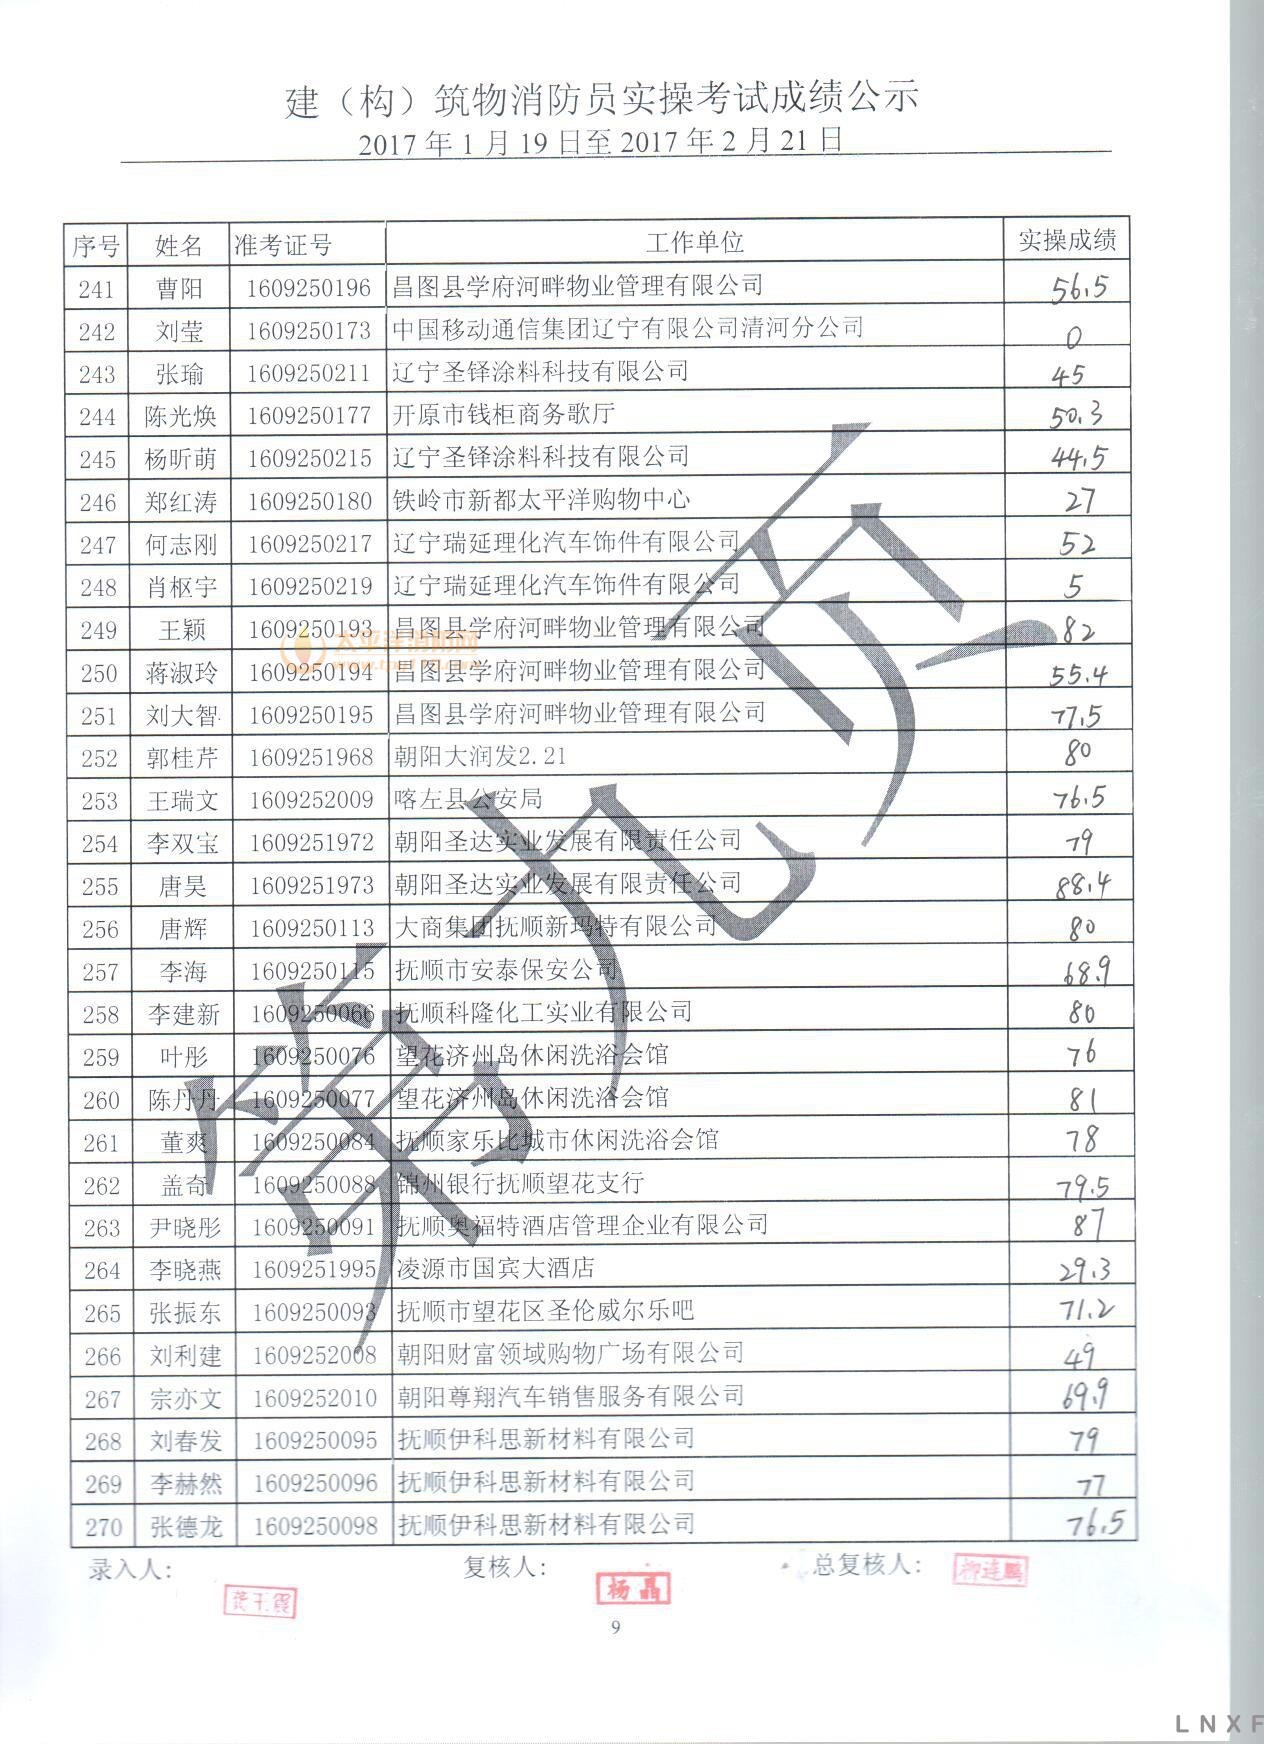 建（构）筑物消防员实操考试成绩公示
2017年1月19日至2017年2月21日
序号 姓名 准考证号 工作单位 实操成绩
241 曹阳 1609250196 昌图县学府河畔物业管理有限公司 56.5
242 刘莹 1609250173 中国移动通信集团辽宁有限公司清河分公司 0
243 张瑜 1609250211 辽宁圣铎涂料科技有限公司 45
244 陈光焕 1609250177 开原市钱柜商务歌厅 50.3
245 杨昕萌 1609250215 辽宁圣铎涂料科技有限公司 44.5
246 郑红涛 1609250180 铁岭市新都太平洋购物中心 27
247 何志刚 1609250217 辽宁瑞延理化汽车饰件有限公司 52
248 肖枢宇 1609250219 辽宁瑞延理化汽车饰件有限公司 5
249 王颖 1609250193 昌图县学府河畔物业管理有限公司 82
250 蒋淑玲 1609250194 昌图县学府河畔物业管理有限公司 55.4
251 刘大智 1609250195 昌图县学府河畔物业管理有限公司 77.5
252 郭桂芹 1609251968 朝阳大润发2.21 80
253 王瑞文 1609252009 喀左县公安局 76.5
254 李双宝 1609251972 朝阳圣达实业发展有限责任公司 79
255 唐昊 1609251973 朝阳圣达实业发展有限责任公司 88.4
256 唐辉 1609250113 大商集团抚顺新玛特有限公司 80
257 李海 1609250115 抚顺市安泰保安公司 68.9
258 李建新 1609250066 抚顺科隆化工实业有限公司 80
259 叶彤 1609250076 望花济州岛休闲洗浴会馆 76
260 陈丹丹 1609250077 望花济州岛休闲洗浴会馆 81
261 董爽 1609250084 抚顺家乐比城市休闲洗浴会馆 78
262 盖奇 1609250088 锦州银行抚顺望花支行 79.5
263 尹晓彤 1609250091 抚顺奥福特酒店管理企业有限公司 87
264 李晓燕 1609251995 凌源市国宾大酒店 29.3
265 张振东 1609250093 抚顺市望花区圣伦威尔乐吧 71.2
266 刘利建 1609252008 朝阳财富领域购物广场有限公司 49
267 宗亦文 1609252010 朝阳尊翔汽车销售服务有限公司 69.9
268 刘春发 1609250095 抚顺伊科思新材料有限公司 79
269 李赫然 1609250096 抚顺伊科思新材料有限公司 77
270 张德龙 1609250098 抚顺伊科思新材料有限公司 76.5
第九页
太平洋消防网
录入人： 复核人： 总复核人：
杨晶 柳连鹏
9
LNXF